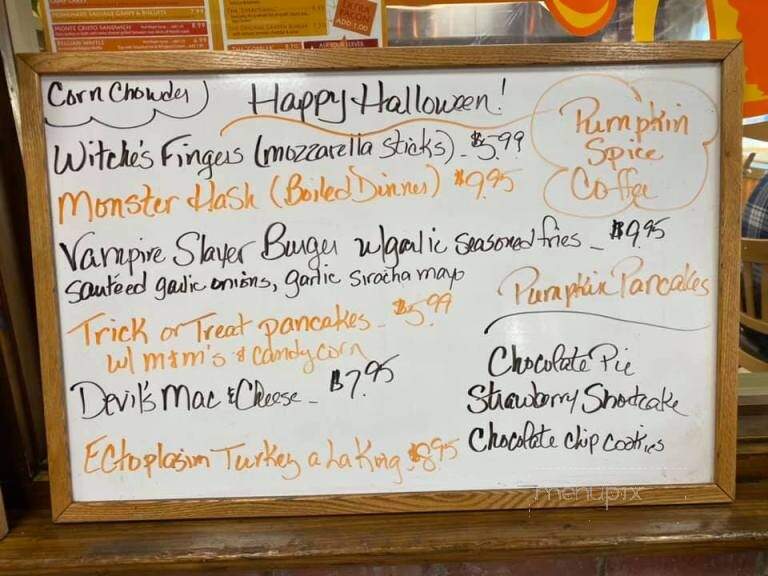 MONTE CRISTO SANDWICH
BELGIAN WAFFLE
EXTRA
BACON
ADD 2.00
Corn Chowder
Happy Halloween!
Pumpkin
Spice
Coffee
Witche's Fingers (mozzarella sticks) - $5.99
Monster Hash (Boiled Dinner) $9.95
Vampire Slayer Burger w/garlic seasoned fries - $9.95
sautéed garlic onions, garlic siracha mayo
Pumpkin Pancakes
Trick or Treat pancakes - $5.99
w/ m&m's & candy corn
Chocolate Pie
Devil's Mac & Cheese - $7.95
Strawberry Shortcake
Ectoplasim Turkey a La King $8.95
Chocolate chip cookies
menupix